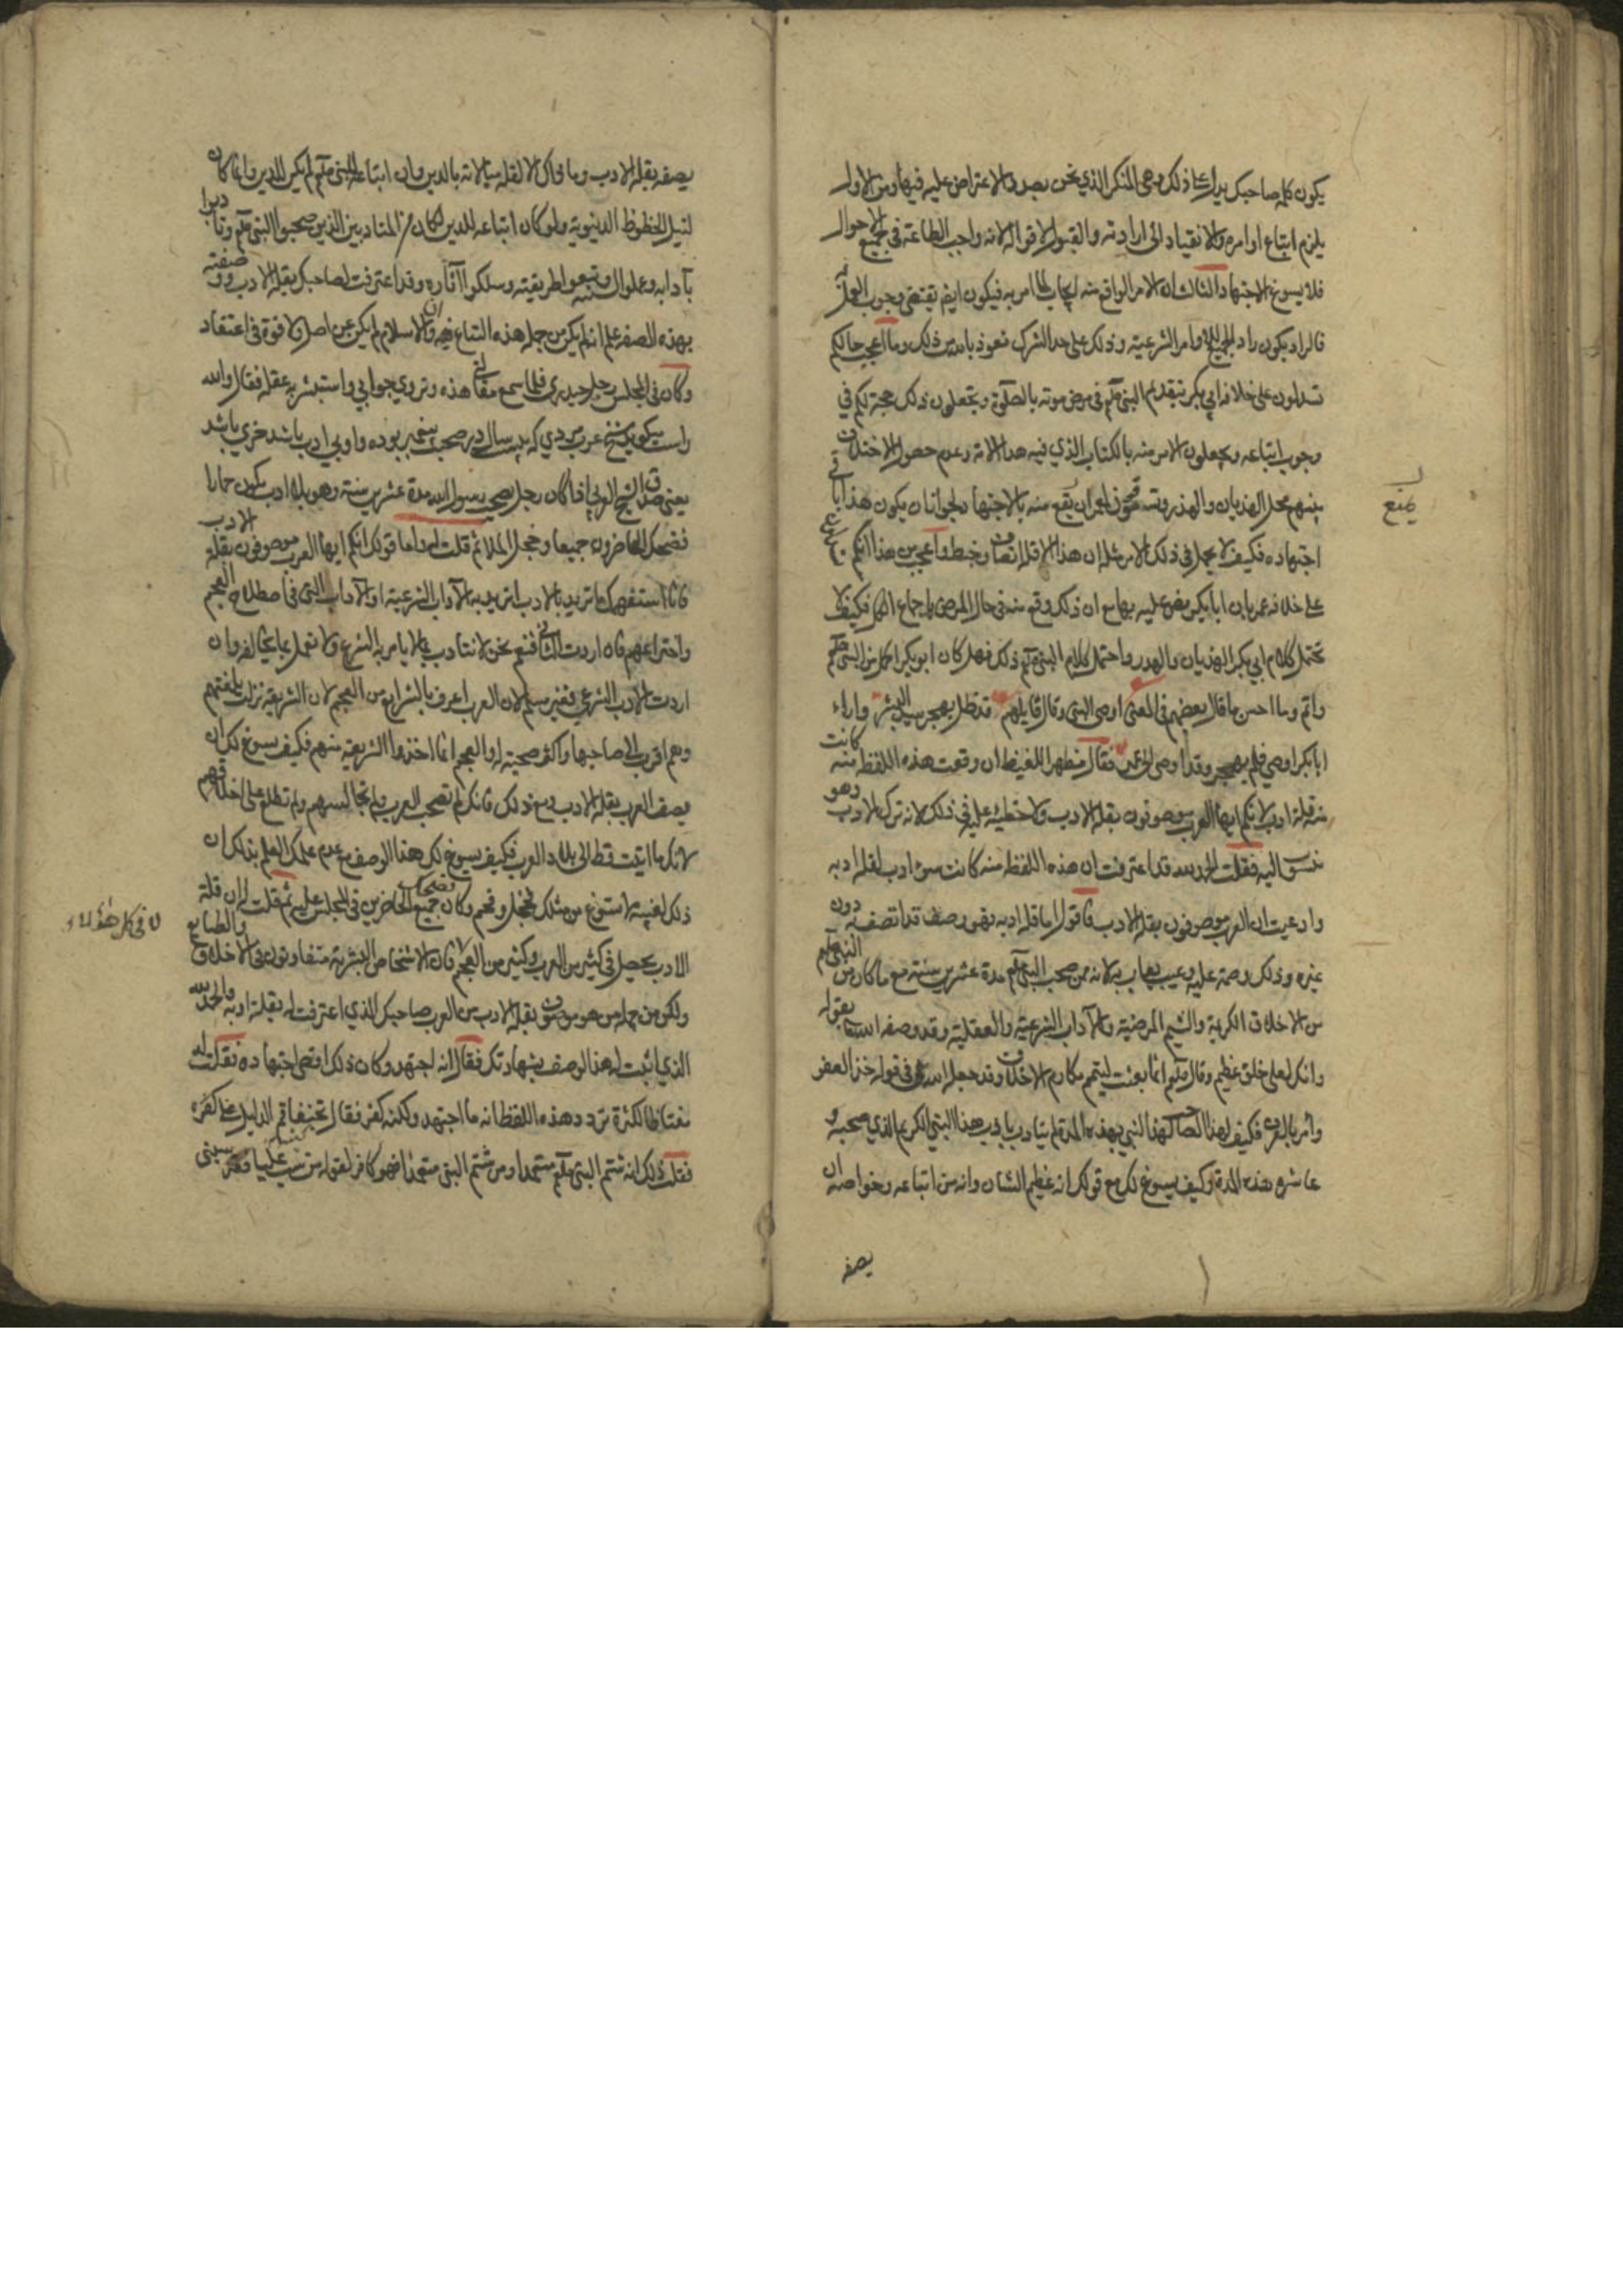 يكون كلام صاحبك يدل على ذلك وهي المنكر الذي نحن بصدد الاعتراض عليه فيها ومن الاول
يلزم اتباع اوامره والانقياد الى ارادته والقبول لاقواله لانه واجب الطاعة في جميع الاحوال
فلا يسوغ الاجتهاد الثالث ان الامر الواقع منه ايجاب لما امر به فيكون ايضا يقتضي وجوب العمل به
فالراد يكون راد لجميع الاوامر الشرعية وذلك على حد الشرك نعوذ بالله من ذلك وما اعجب حالكم
تستدلون على خلافة ابي بكر بتقديم النبي صلعم في مرض موته بالصلوة وتجعلون ذلك حجة لكم في
وجوب اتباعه وتجعلون الامر منه بالكتاب الذي فيه هداية الامة وعدم حصول الاختلاف
بينهم محل الهذيان والهذر وتسوغون لعمر ان يمنع منه بالاجتهاد ولجوا ان يكون هذا باقي
اجتهاده فكيف لا يحمل في ذلك الامر مثله ان هذا الا قلة انصاف وخبط واعجب من هذا انكم
على خلافة عمر بان ابا بكر نص عليه بها مع ان ذلك وقع منه في حال المرض باجماع الكل فكيف لا
تحتمل كلام ابي بكر الهذيان والهدر واحتمل كلام النبي صلعم ذلك فهل كان ابو بكر اكمل من النبي صلعم
واتم وما احسن ما قال بعضهم في المعنى اوصى النبي وقال قايلهم قد ظل يهجر سيد البشر وارا
ابا بكر اوصى فلم يهجر وقد اوصى الى عمر فقال مظهرا للغيظ ان وقعت هذه اللفظة منه كانت
من قلة ادب لانكم ايها العرب موصوفون بقلة الادب ولا خطيئة عليه في ذلك لانه ترك الادب وهو
منسوب اليه فقلت الحمد لله قد اعترفت ان هذه اللفظة منه كانت سوء ادب لقلة ادبه
وادعيت ان العرب موصوفون بقلة الادب فاقول اما قلة ادبه فهو وصف قد اتصف به دون
غيره وذلك وصمة عليه وعيب يعاب به لانه ممن صحب النبي صلعم مدة عشرين سنة مع ما كان من النبي صلعم
من الاخلاق الكريمة والشيم المرضية والآداب الشرعية والعقلية وقد وصفه الله تعالى بقوله
وانك لعلى خلق عظيم وقال صلعم انما بعثت ليتمم مكارم الاخلاق وقد جعل الله في قوله خذ العفو
وأمر بالعرف فكيف لهذا الصاحب لهذا النبي بهذه المدة لم يتادب باداب هذا النبي الكريم الذي صحبه و
عاشره هذه المدة وكيف يسوغ لك مع قولك انه عظيم الشان وانه من اتباعه وخواصه ان
يصفه
يمنع
يصفه بقلة الادب وما ذاك الا لقلة مبالاته بالدين وان اتباعه للنبي صلعم لم يكن للدين وانما كان
لنيل الحظوظ الدنيوية ولو كان اتباعه للدين لكان من المتادبين الذين صحبوا النبي صلعم وتادبوا
بآدابه وعملوا بسنته وتبعوا طريقته وسلكوا آثاره وقد اعترفت لصاحبك بقلة الادب ووصفته
بهذه الصفة علم انه لم يكن من جملة هذه التباع فيه وان الاسلام لم يكن عن اصل ولا قوة في اعتقاد
وكان في المجلس رجل حيدري فلما سمع مقالتي هذه وتروي جوابي واستبشر به عقله فقال والله
راست ميكويد شيخ عرب مردي كه بيست سال در صحبت پيغمبر بوده واو بي ادب باشد خري باشد
يعني صدق الشيخ العربي اذا كان رجل يصحب رسول الله مدة عشرين سنة وهو بلا ادب يكون حمارا
فضحك الحاضرون جميعا وخجل الملا ثم قلت له واما قولك انكم ايها العرب موصوفون بقلة الادب
فانا استفهمك ما تريد بالادب اتريد به الآداب الشرعية او الآداب التي في اصطلاح العجم
واختراعهم فان اردت الثاني فنعم نحن لا نتادب بما لا يامر به الشرع ولا نعمل بما يخالفه وان
اردت الادب الشرعي فغير مسلم لان العرب اعرف بالشرايع من العجم لان الشريعة نزلت بلغتهم
وهم اقرب الى صاحبها واكثر صحبة له والعجم انما اخذوا الشريعة منهم فكيف يسوغ لك ان
يصف العرب بقلة الادب ومع ذلك فانك لم تصحب العرب ولم تجالسهم ولم تطلع على اخلاقهم
لانك ما اتيت قط الى بلاد العرب فكيف يسوغ لك هذا الوصف مع عدم علمك العلم بذلك ان
ذلك لغيبة لا تسوغ من مثلك فخجل وفحم وكان جميع الحاضرين في المجلس عليه ثم قلت له ان قلة
الادب يحصل في كثير من العرب وكثير من العجم لان الاشخاص البشرية متفاوتون في الاخلاق والطبايع
ولكن من جملة من هو موصوف بقلة الادب من العرب صاحبك الذي اعترفت له بقلة ادبه والحمد لله
الذي اثبت له هذا الوصف بشهادتك فقال انه اجتهد وكان ذلك اقصى اجتهاده فقلت له
مغتاظا لكثرة تردد هذه اللفظة انه ما اجتهد ولكنه كفر فقال اقم الدليل على كفره
فقلت ذلك انه شتم النبي صلعم متعمدا ومن شتم النبي متعمدا فهو كافر لقوله من سب عليا فقد سبني
لا في كل هؤلاء